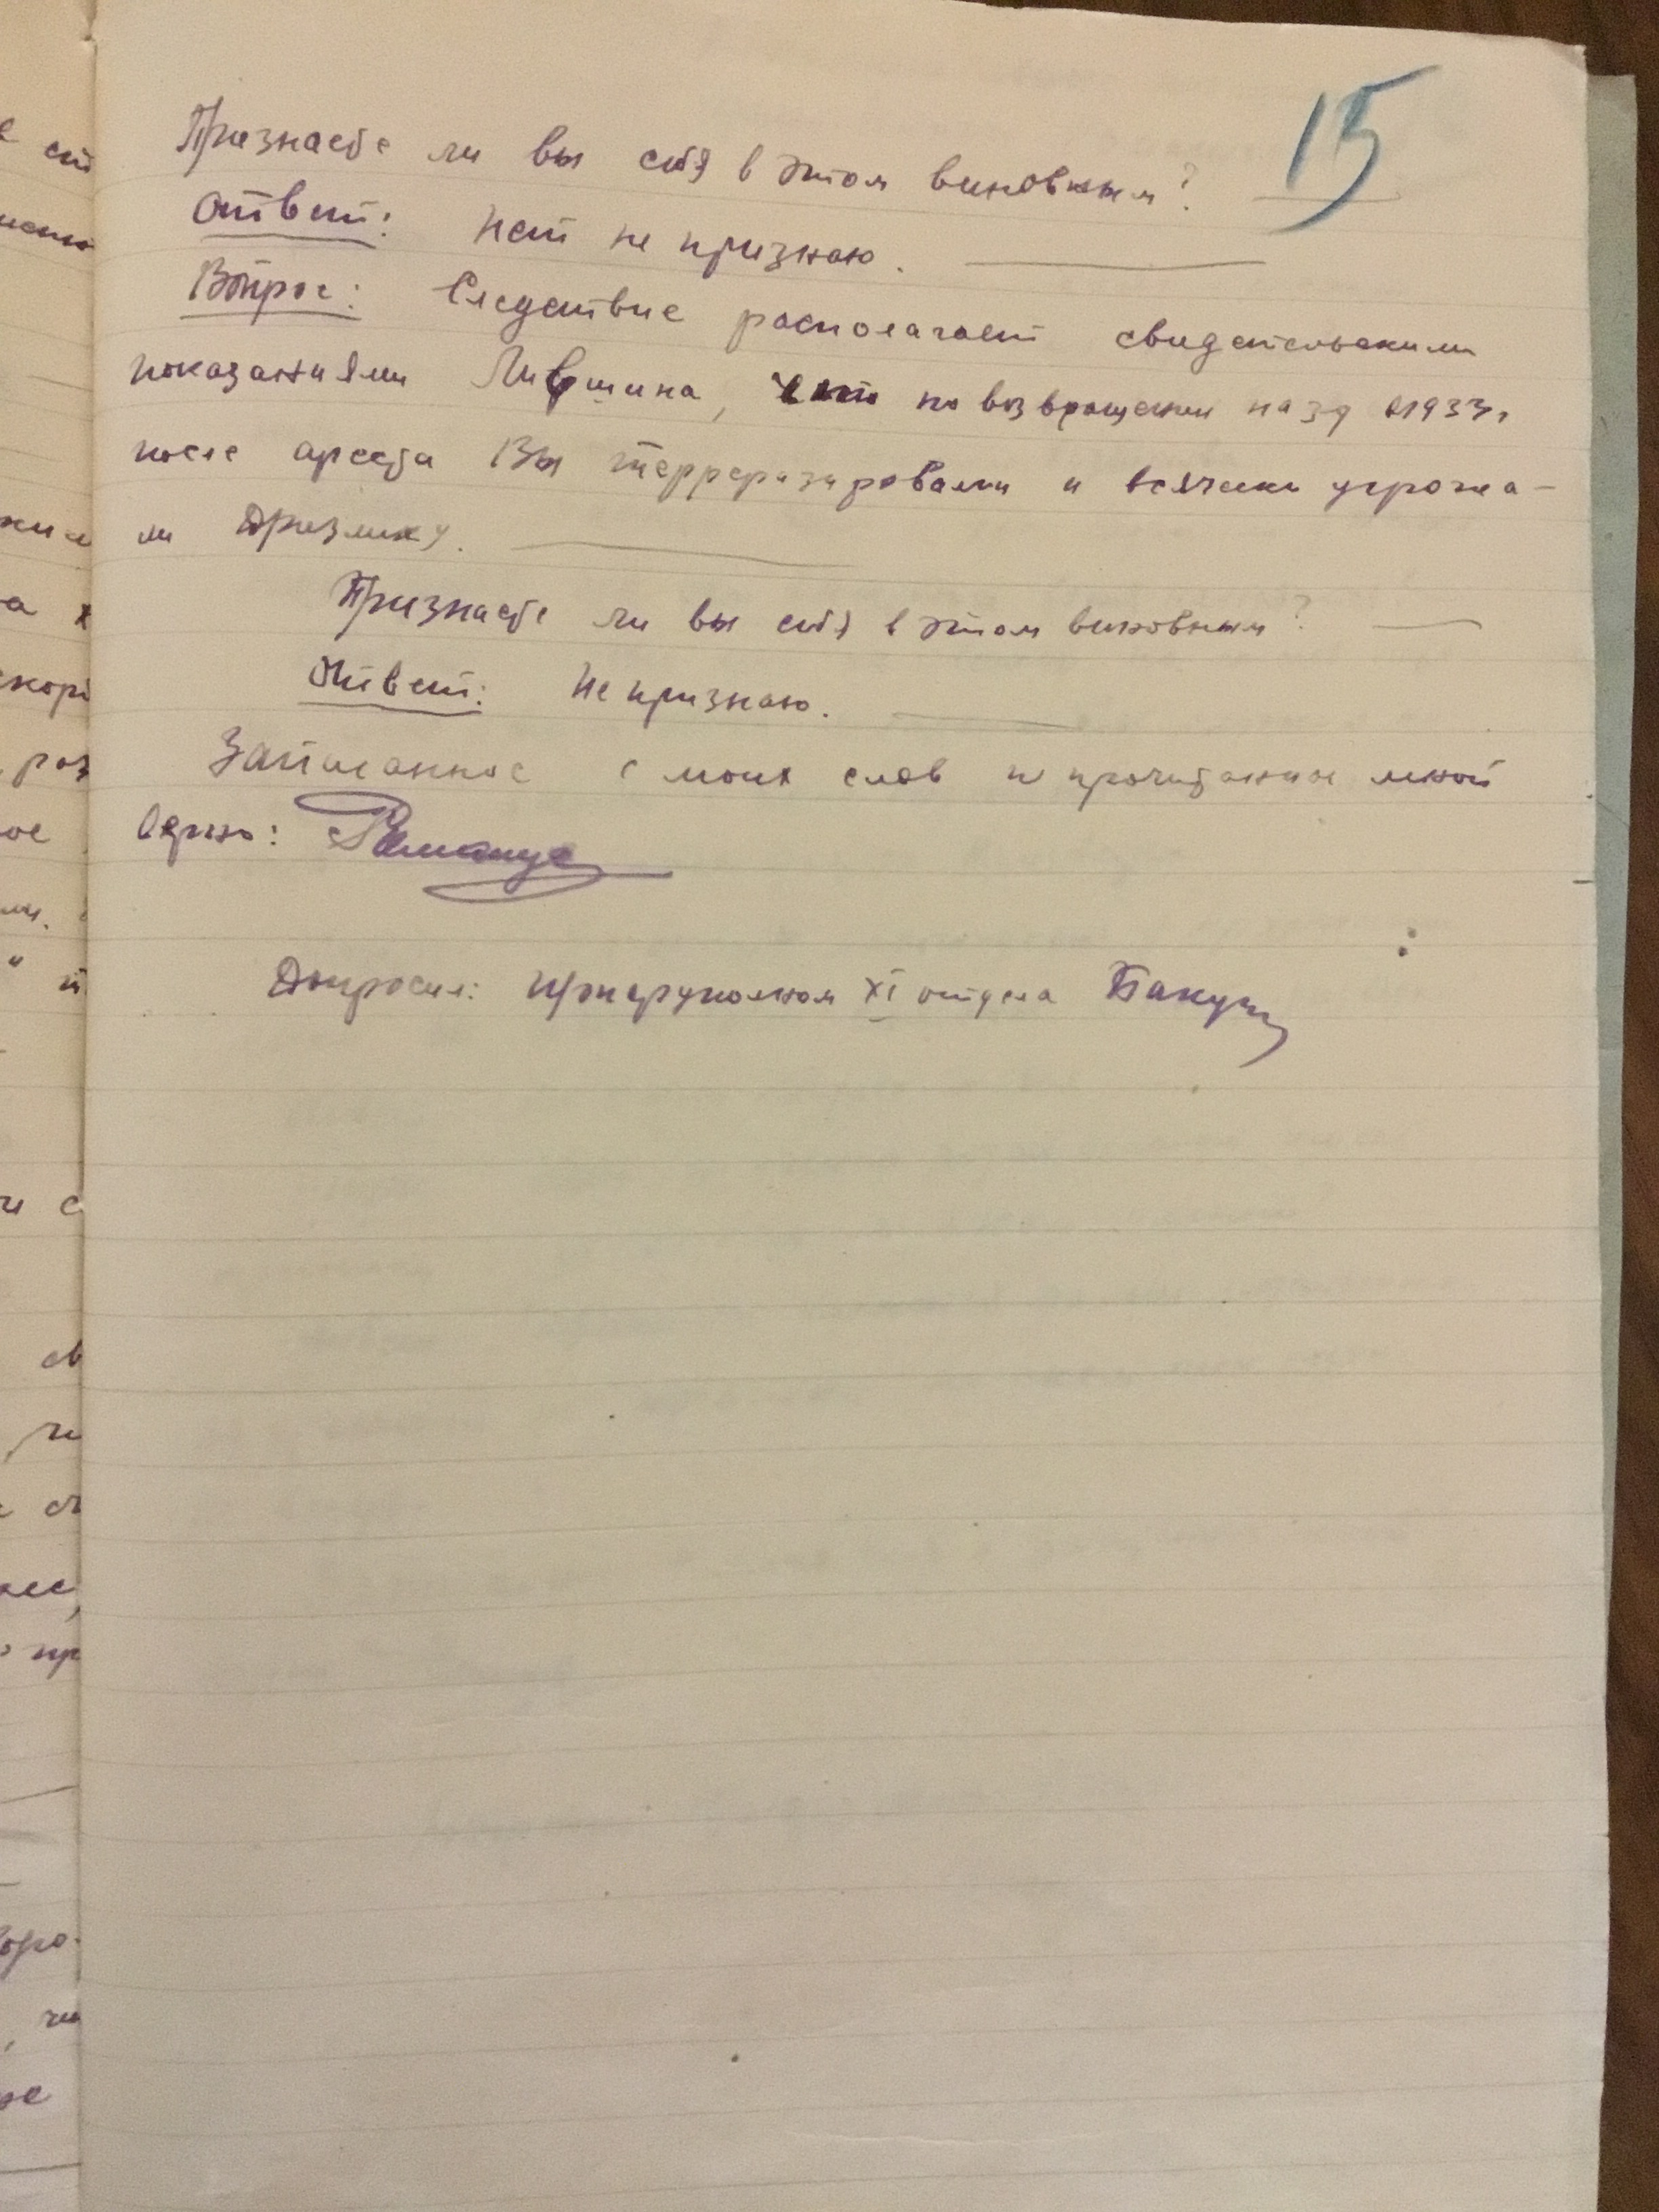 15
Признаете ли вы себя в этом виновным?
Ответ: Нет не признаю.
Вопрос: Следствие располагает свидетельскими
показаниями Лившина, что по возвращении на зд в 1933г.
после ареста Вы терреризировали и всячески угрожа-
ли Дризлиху.
Признаете ли вы себя в этом виновным?
Ответ: Не признаю.
Записанное с моих слов и прочитанное мной
верно:
Допросил: Оперуполном XI отдела Бакун